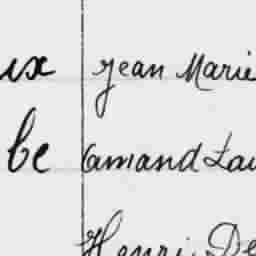 ux Jean Marie
be Amand Lau
Henri De